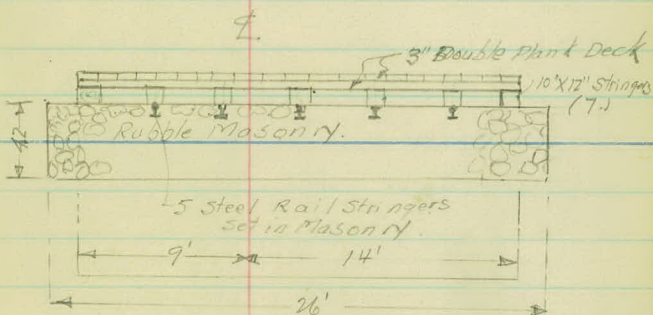 ℄.
3" Double Plank Deck
10"X12" Stringers
(7.)
42"
Rubble Masonry.
5 Steel Rail Stringers
Set in Masonry.
9'
14'
26'